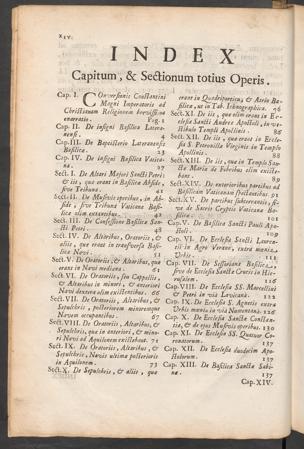 XIV.
INDEX
Capitum, & Sectionum totius Operis.
Cap. I. Conversionis Constantini
Magni Imperatoris ad
Christianam Religionem brevissima
enarratio. Pag. 1
Cap. II. De insigni Basilica Lateranensi.
Cap. III. De Baptisterio Lateranensis
Basilicæ. 23
Cap. IV. De insigni Basilica Vaticana.
Sect. I. De Altari Majori Sancti Petri:
& iis, que erant in Basilicæ Abside,
sive Tribuna. 41
Sect. II. De Musivis operibus, in Abside,
sive Tribuna Vaticanæ Basilicæ
olim extantibus. 42
Sect. III. De Confessione Basilicæ Sancti
Petri. 48
Sect. IV. De Altaribus, Oratoriis, &
aliis, que erant in transversa Basilicæ
Navi. 51
Sect. V. De Oratoriis, & Altaribus, que
erant in Navi mediana. 61
Sect. VI. De Oratoriis, seu Cappellis,
& Altaribus in minori, & exteriori
Navi dextera olim existentibus. 66
Sect. VII. De Oratoriis, Altaribus, &
Sepulchris, posteriorem minoremque
Navem occupantibus. 67
Sect. VIII. De Oratoriis, Altaribus, &
Sepulchris, que in anteriori, & minori
Navi ad Aquilonem extabant. 71
Sect. IX. De Oratoriis, Altaribus, &
Sepulchris, Navis ultimæ posterioris
in Aquilonem. 73
Sect. X. De Sepulchris, & aliis, que
erant in Quadriporticu, & Atrio Basilicæ,
ut in Tab. Ichnographica. 76
Sect. XI. De iis, que olim erant in Ecclesia
Sancti Andreæ Apostoli, in vestibulo
Templi Apollinis. 86
Sect. XII. De iis, que erant in Ecclesia
S. Petronillæ Virginis in Templo
Apollinis. 88
Sect. XIII. De iis, que in Templo Sanctæ
Mariæ de Febribus olim existebant. 89
Sect. XIV. De exterioribus partibus ad
Basilicam Vaticanam pertinentibus. 91
Sect. XV. De partibus subterraneis, sive
de Sacris Cryptis Vaticanæ Basilicæ. 101
Cap. V. De Basilica Sancti Pauli Apostoli. 109
Cap. VI. De Ecclesia Sancti Laurentii
in Agro Verano, extra mœnia
Urbis.
Cap. VII. De Sessoriana Basilica,
sive de Ecclesia Sanctæ Crucis in Hierusalem 116
Cap. VIII. De Ecclesia SS. Marcellini
& Petri in via Lavicana. 122
Cap. IX. De Ecclesia S. Agnetis extra
Urbis mœnia in via Numentana. 126
Cap. X. De Ecclesia Sanctæ Constantiæ,
& de ejus Musivis operibus. 130
Cap. XI. De Ecclesia SS. Quatuor Coronatorum. 137
Cap. XII. De Ecclesia duodecim Apostolorum. 137
Cap. XIII. De Basilica Sanctæ Sabinæ. 137
Cap. XIV.